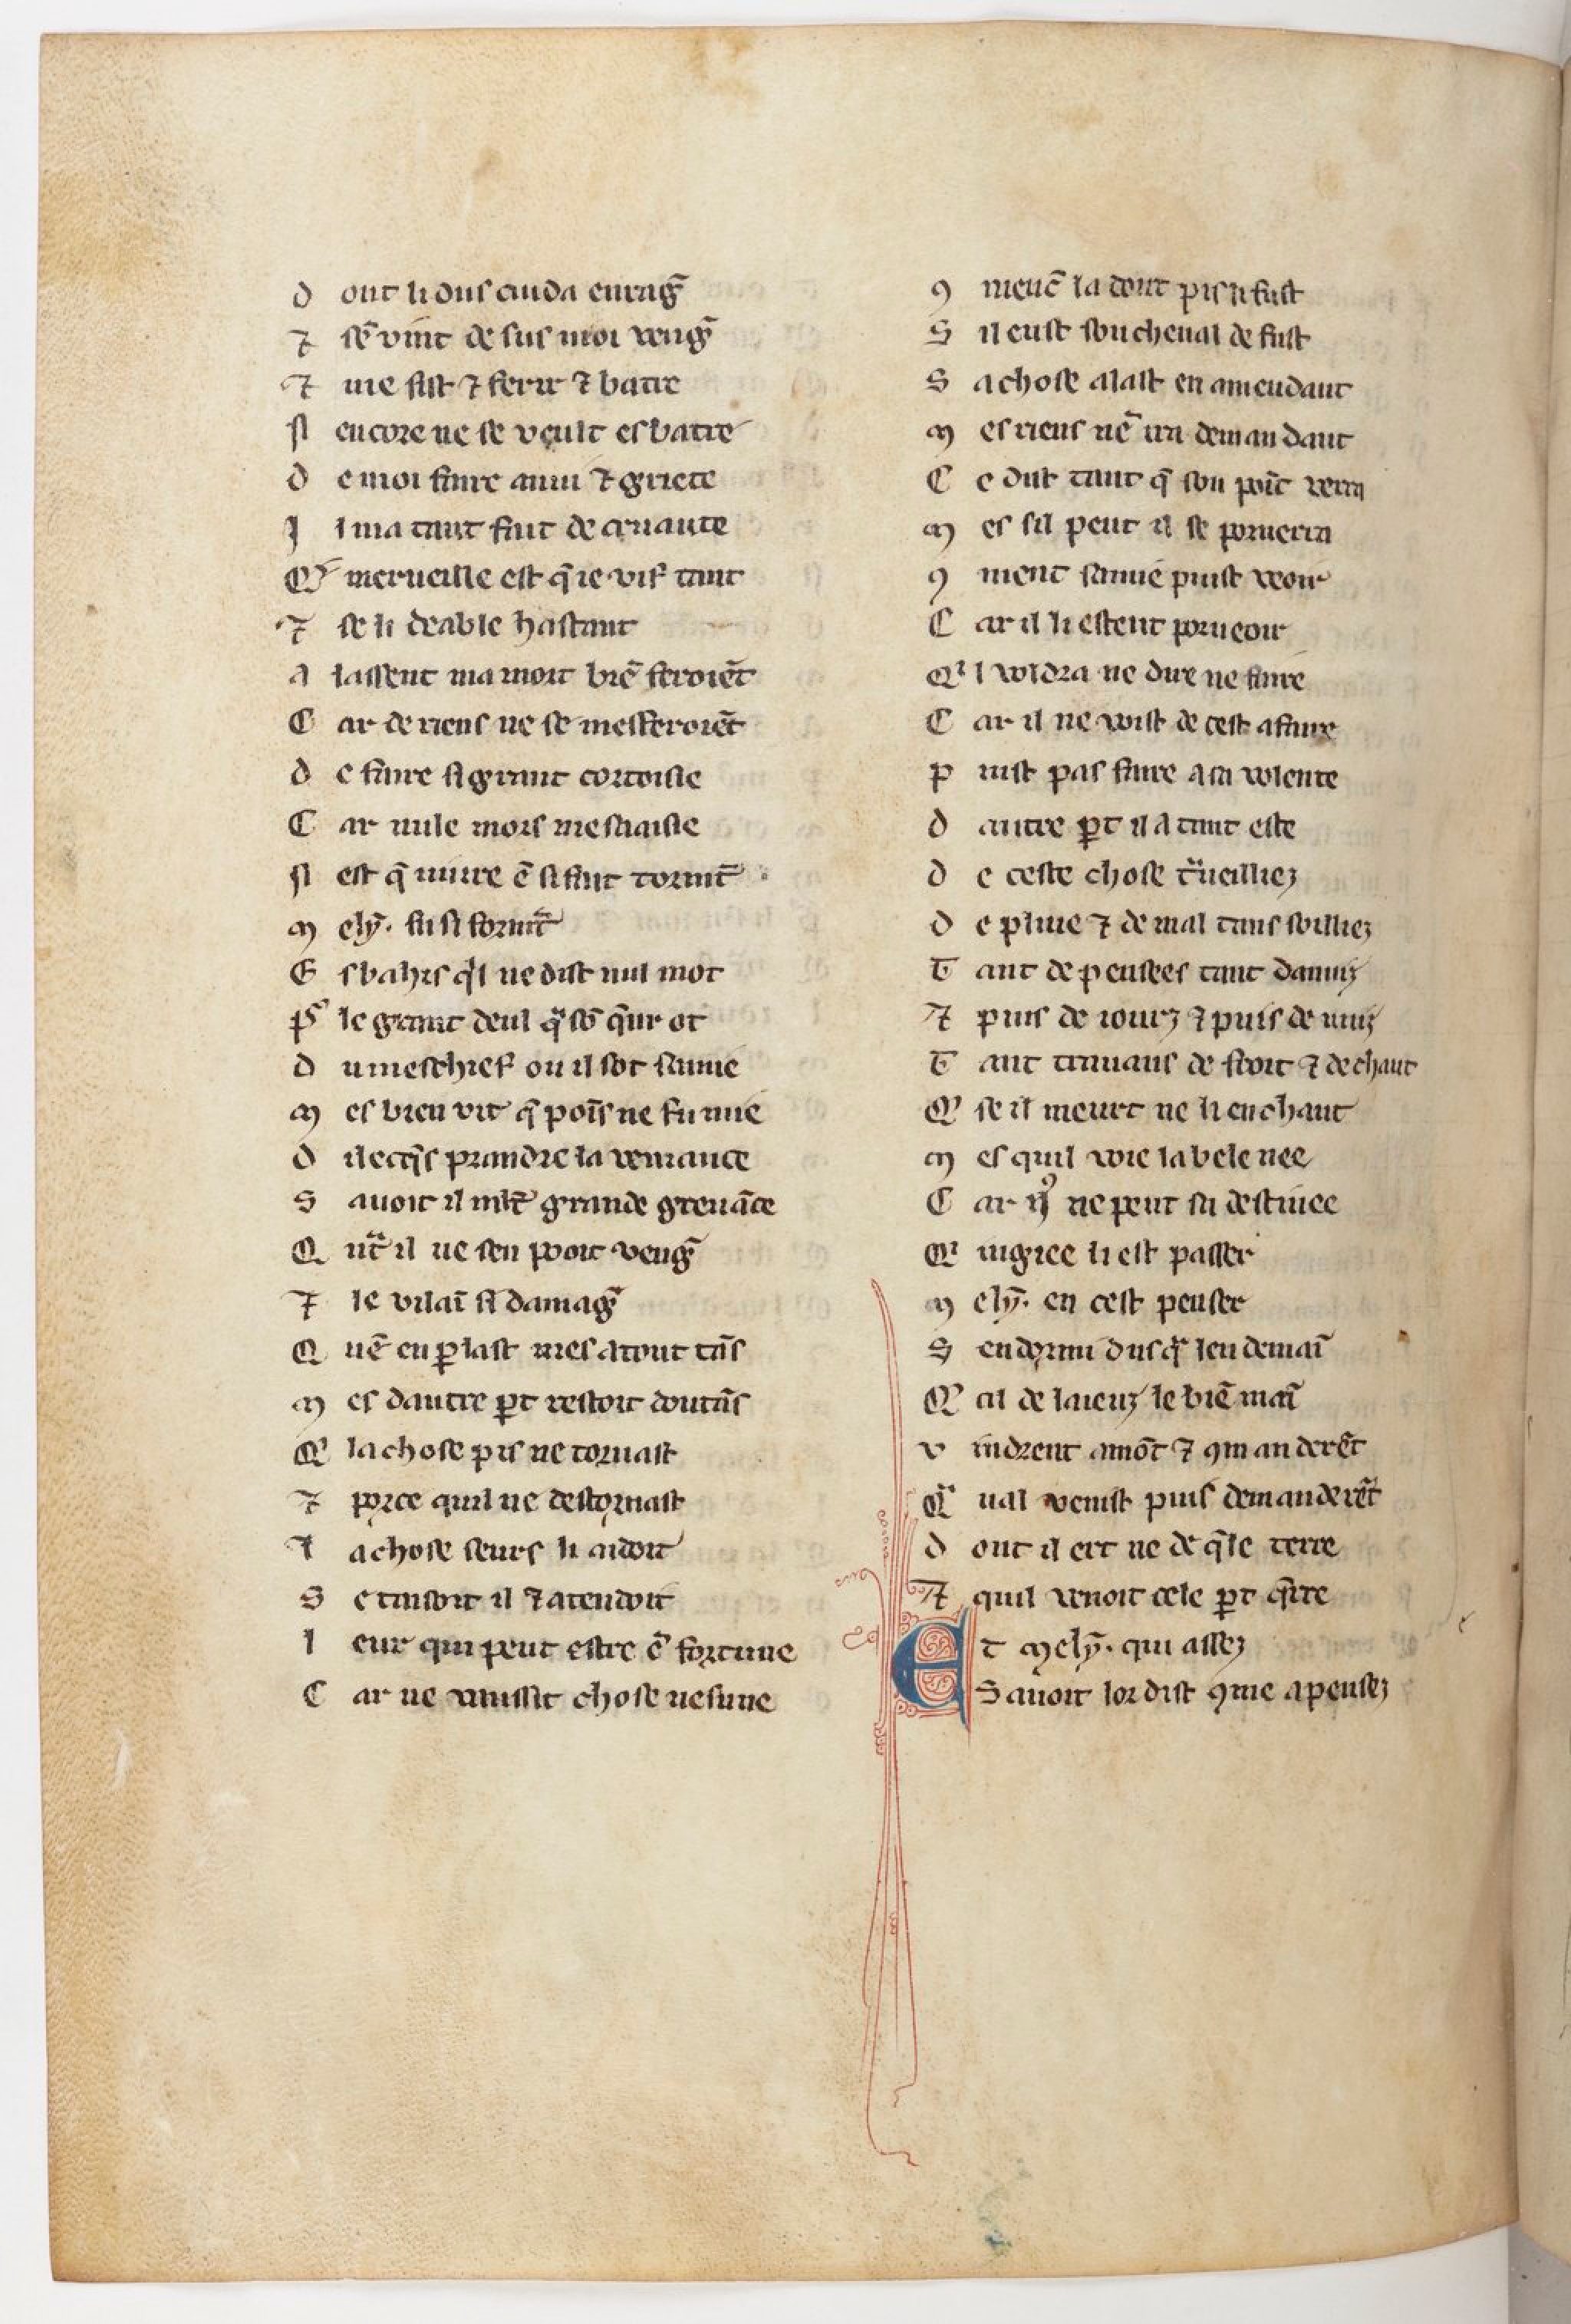 d ont li dus cuida enrag̃
⁊ sē vint de sus moi veng̃
⁊ me fist ⁊ ferir ⁊ batre
si encore ne se veult esbatre
d e moi faire anui ⁊ griete
J l ma tant fait de cruaute
Q' merueille est q̃ ie vif tant
⁊ se li deable hastant
a lassent ma mort biē feroiēt
C ar de riens ne se mesferoiēt
d e faire si grant cortoisie
C ar nule mors mesaaisie
si est q̃ uiure ē si fait tormt̃
m ely᷈. fu si formt̃
E sbahis q'l ne dist nul mot
p' le grant deul q̃ sō q̃ur ot
d u meschief ou il sot samie
m es bien vit q̃ poīs ne fu mie
d ilecq̃s prandre la veniance
S auoit il ml't grande greuāce
Q nt̃ il ne sen pooit veng̃
⁊ le vilaī si damag̃
Q uē en ꝑlast mes a tout tās
m es dautre ꝑt restoit doutās
Q' la chose pis ne tornast
⁊ porce quil ne destornast
l a chose seurs li aidoit
S e taisoit il ⁊ atendoit
l eur qui peut estre ē fortune
C ar ne vausist chose nesune
ꝯ menc̄ la dont pis li fust
S il eust son cheual de fust
S a chose alast en amendant
m es riens nē ira demandant
C e dit tant q̃ son poīt verra
m es sil peut il se poruerra
ꝯ ment samie puist veoir
C ar il li esteut porueoir
Q' l voldra ne dire ne faire
C ar il ne voist de cest afaire
p uist pas faire a sa volente
d autre ꝑt il a tant este
d e ceste chose t'ueilliez
d e pluie ⁊ de mal tans soilliez
T ant de pensees tant danuiz
⁊ puis de iourz ⁊ puis de nuiz
T ant trauaus de froit ⁊ de chaut
Q' se il meurt ne li en chaut
m es quil voie la bele nee
C ar nꝰ ne peut sa destinee
Q' nigree li est passer
m ely᷈. en cest penser
S endormi dusq̃ lendemaī
Q' cil de laienz le biē maī
v indrent amōt ⁊ ꝯmanderēt
Q̃ ual venist puis demanderēt
d ont il ert ne de q̃le terre
⁊ quil venoit cele ꝑt q̃rre
E t mely᷈. qui assez
S auoit lor dist ꝯme apensez